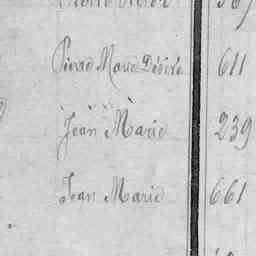 Pierre Marie Désiré 611
Jean Marie 239
Jean Marie 661